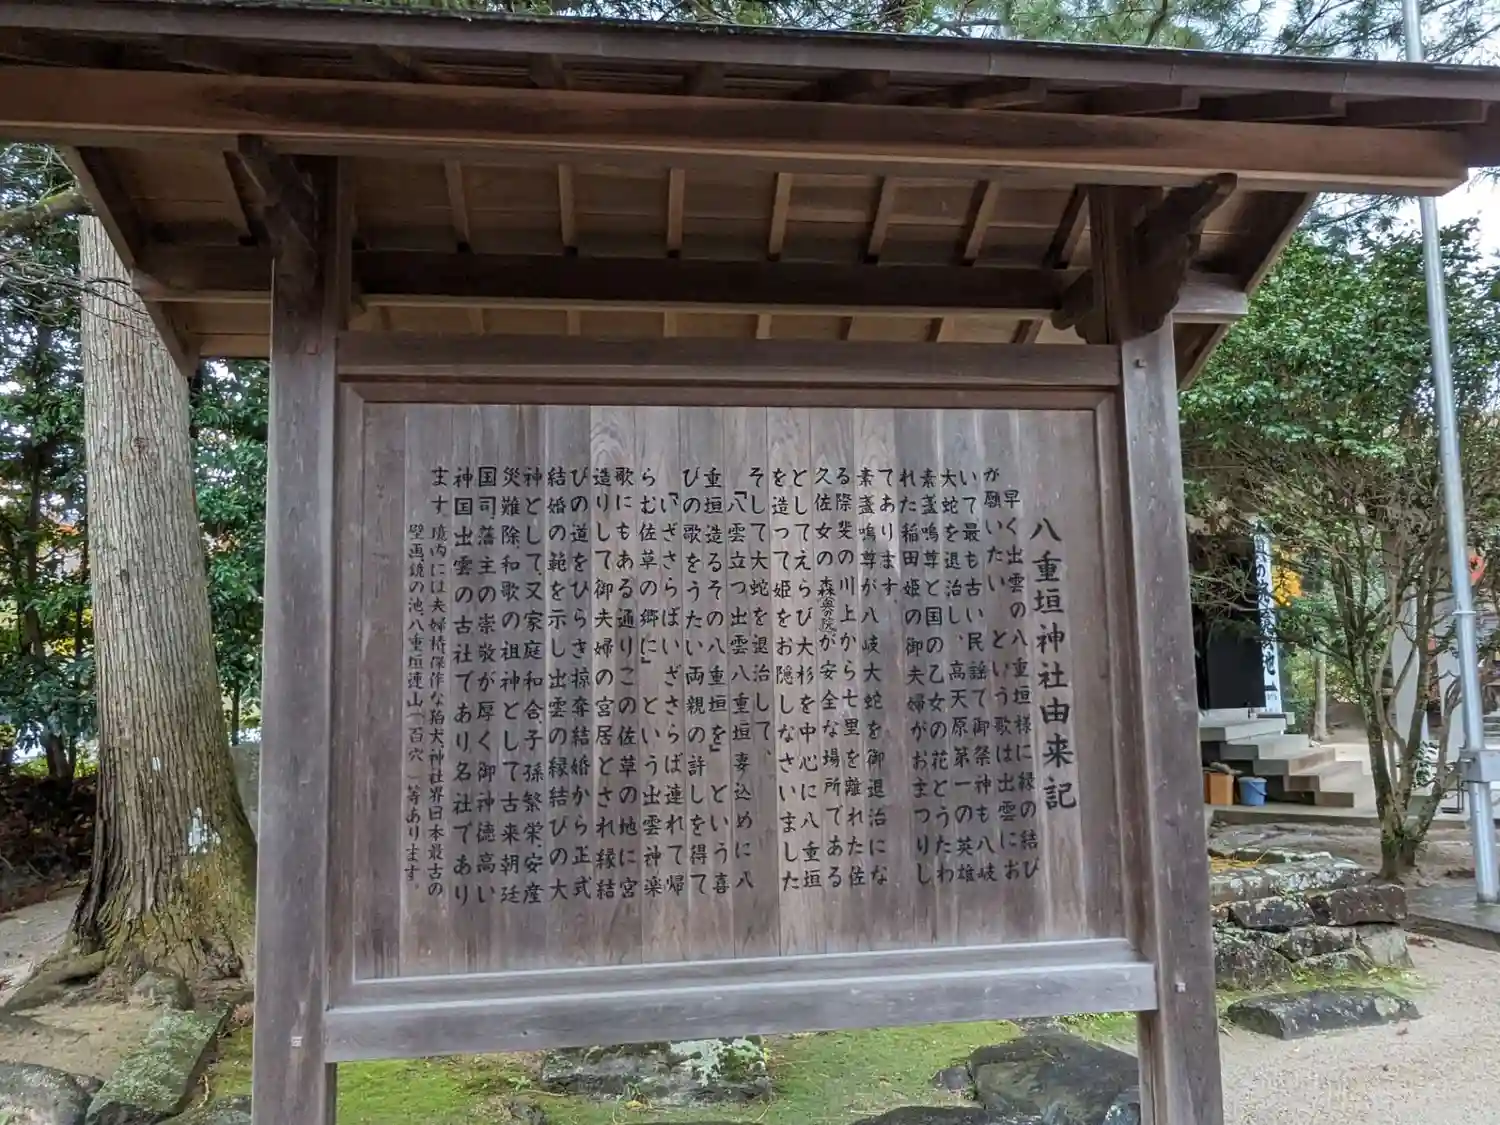 八重垣神社由来記
早く出雲の八重垣様に縁の結び
が願いたい　という歌は出雲にお
いて最も古い民謡で御祭神も八岐
大蛇を退治し、高天原第一の英雄
素盞嗚尊と国の乙女の花とうたわ
れた稲田姫の御夫婦がお主つりし
てあります。
素盞嗚尊が八岐大蛇を御退治にな
る際斐の川上から七里を離れた佐
久佐女の森奥の院が安全な場所である
としてえらび大杉を中心に八重垣
を造って姫をお隠しなさいました
そして大蛇を退治して、
「八雲立つ出雲八重垣妻込めに八
重垣造るその八重垣を」という喜
びの歌をうたい両親の許しを得て
「いざさらばいざさらば連れて帰
らむ佐草の郷に」という出雲神楽
歌にもある通りこの佐草の地に宮
造りして御夫婦の宮居とされ縁結
びの道をひらき掠奪結婚から正式
結婚の範を示し出雲の縁結びの大
神として又家庭和合子孫繁栄、安産
災難除和歌の祖神として古来朝廷
国司、藩主の崇敬が厚く御神徳高い
神国出雲の古社であり名社であり
ます。境内には夫婦椿傑作な狛犬、神社界日本最古の
壁画鏡の池、八重垣連山「百穴」等あります。